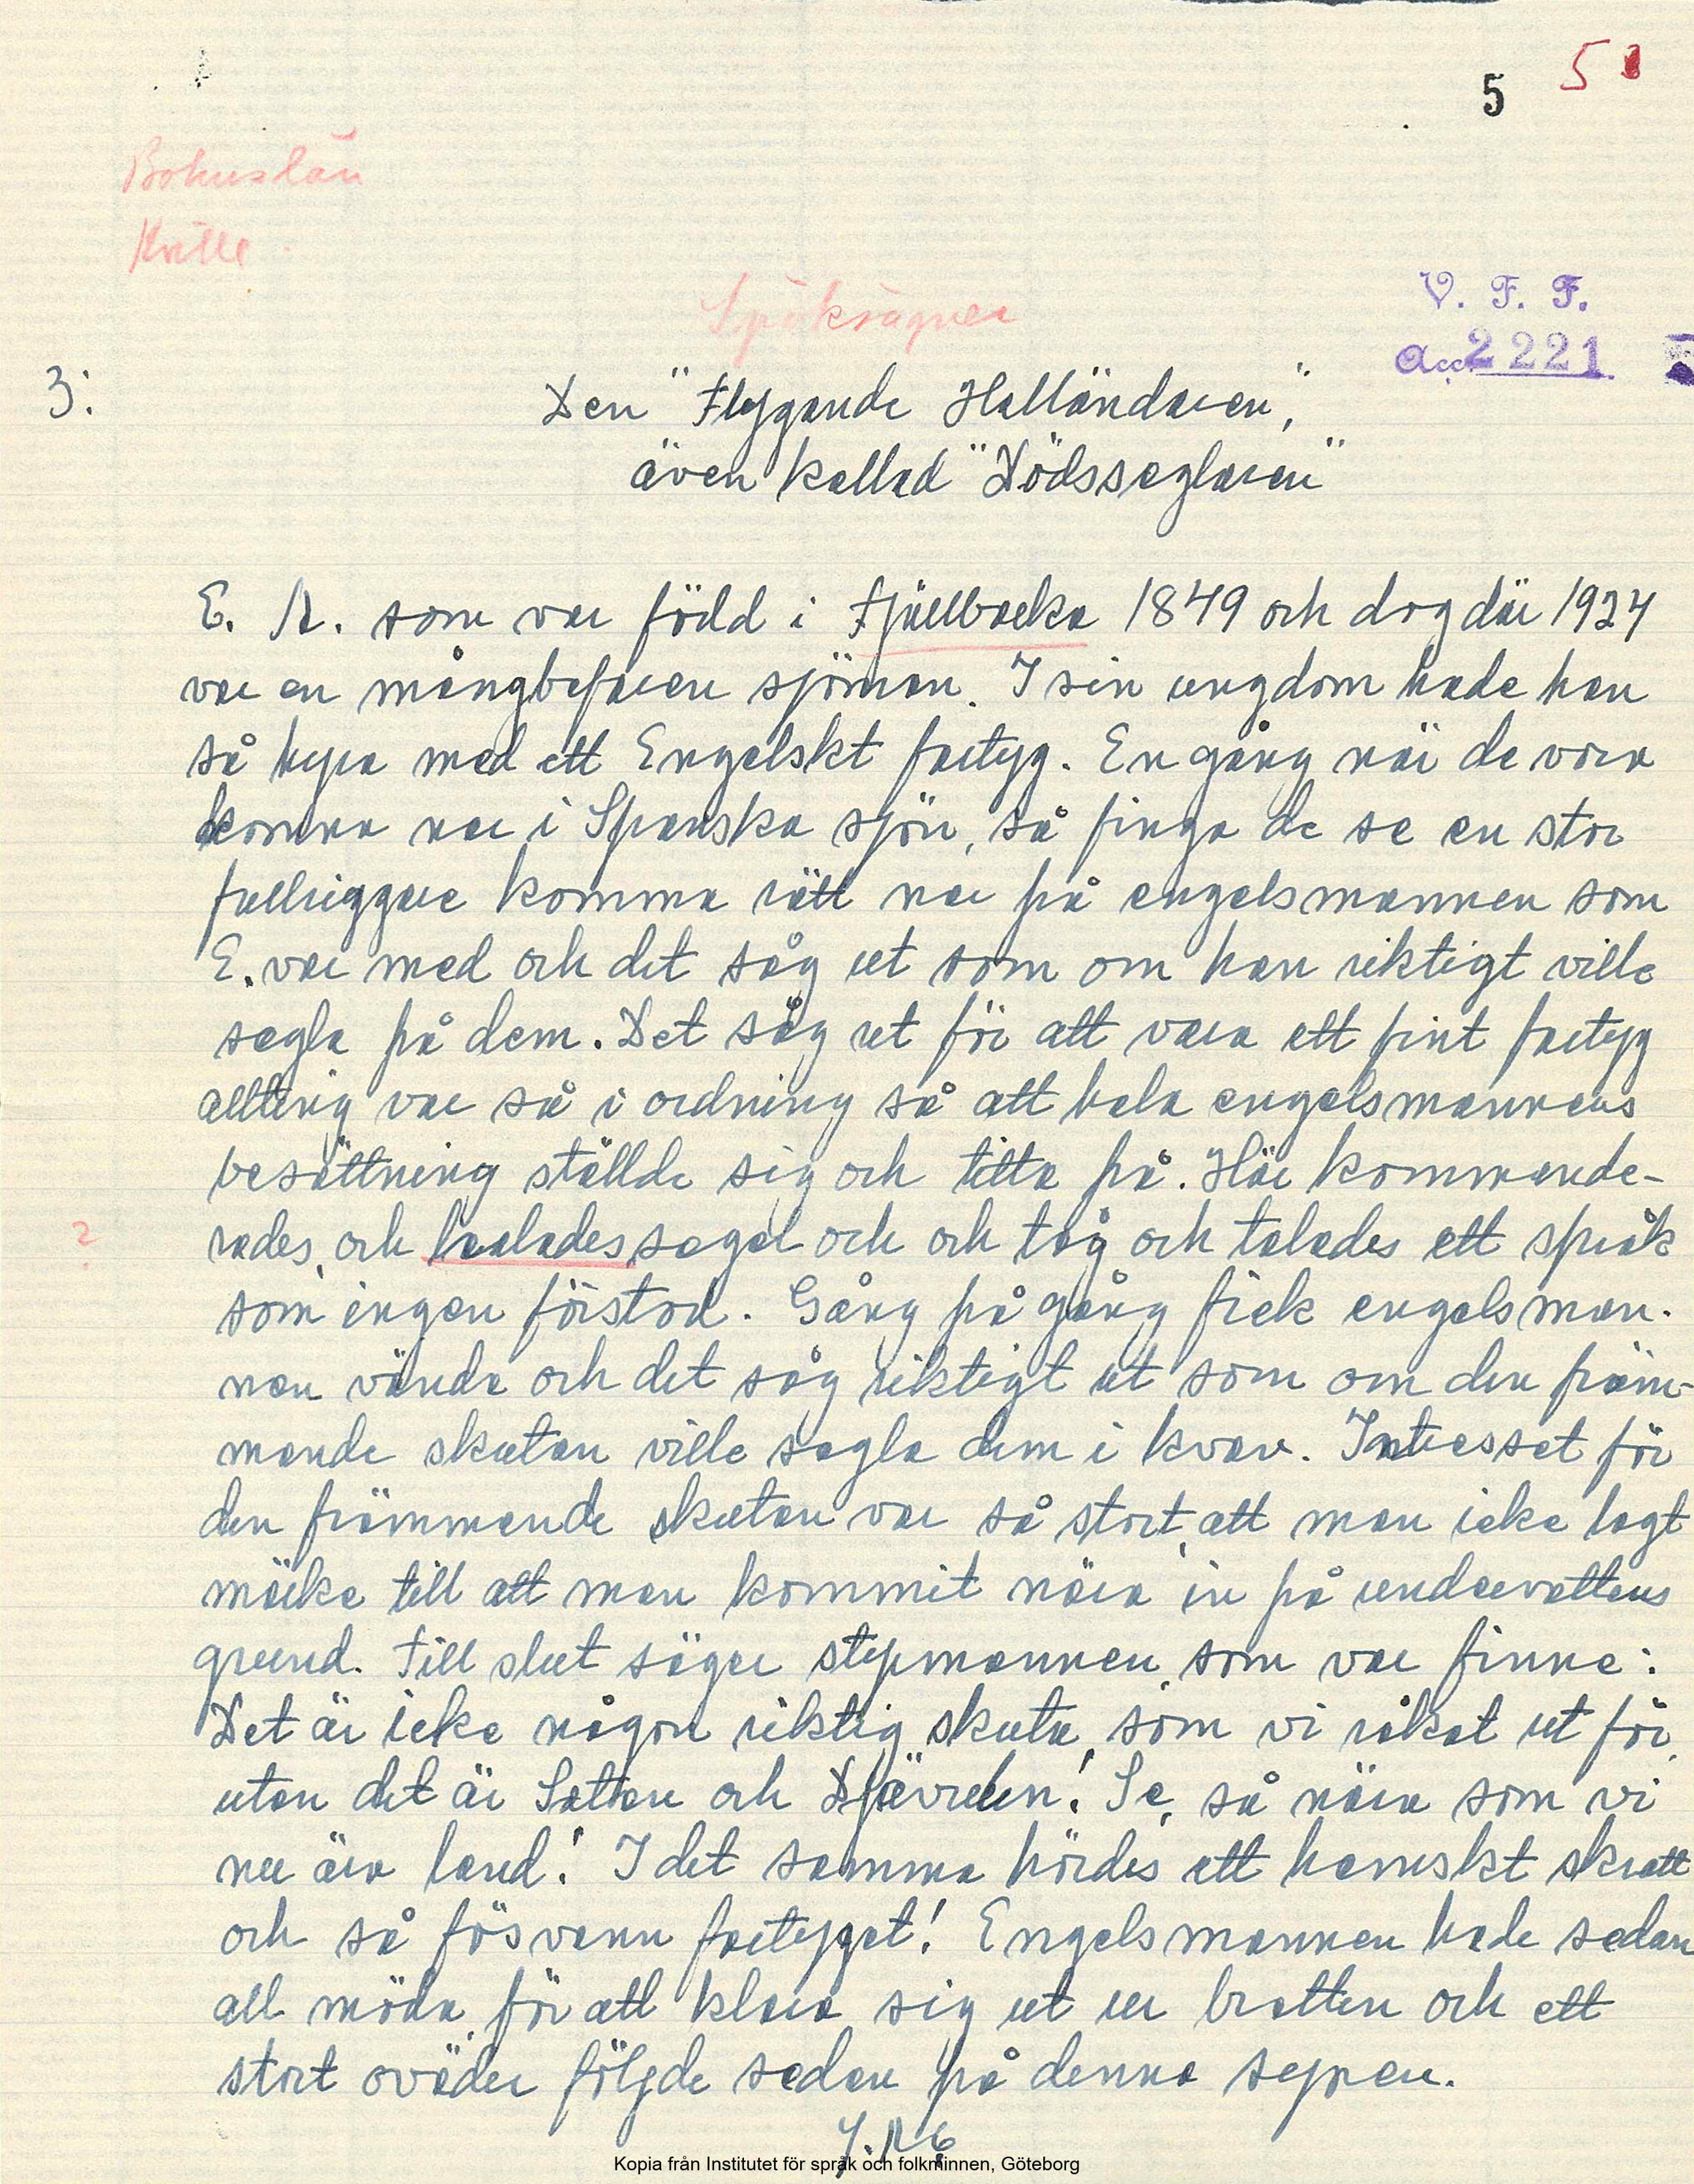 5 5
Bohuslän
Kville
Spöksägner
V. F. F.
Acc 2221
3:
Den "Flygande Holländaren",
även kallad "Dödsseglaren"
E. N. som var född i Fjällbacka 1849 och dog där 1924
var en mångbefaren sjöman. I sin ungdom hade han
så hyra med ett Engelskt fartyg. En gång när de vora
komna ner i Spanska sjön, så finga de se en stor
fullriggare komma rätt ner på engelsmannen som
E. var med och det såg ut som om han riktigt ville
segla på dem. Det såg ut för att vara ett fint fartyg
allting var så i ordning så att hela engelsmannens
besättning ställde sig och titta på. Här kommande-
rades, och halades segel och och tåg och talades ett språk
som ingen förstod. Gång på gång fick engelsman-
nen vända och det såg riktigt ut som om den främ-
mande skutan ville segla dem i kvav. Intresset för
den främmande skutan var så stort, att man icke lagt
märke till att man kommit nära in på undervattens
grund. Till slut säger styrmannen, som var finne:
Det är icke någon riktig skuta, som vi råkat ut för,
utan det är Sattan och Djävulen! Se, så nära som vi
nu ära land! I det samma hördes ett hemskt skratt
och så fösvann fartyget! Engelsmannen hade sedan
all möda, för att klara sig ut ur bratten och ett
stort oväder följde sedan på denna synen.
Kopia från Institutet för språk och folkminnen, Göteborg